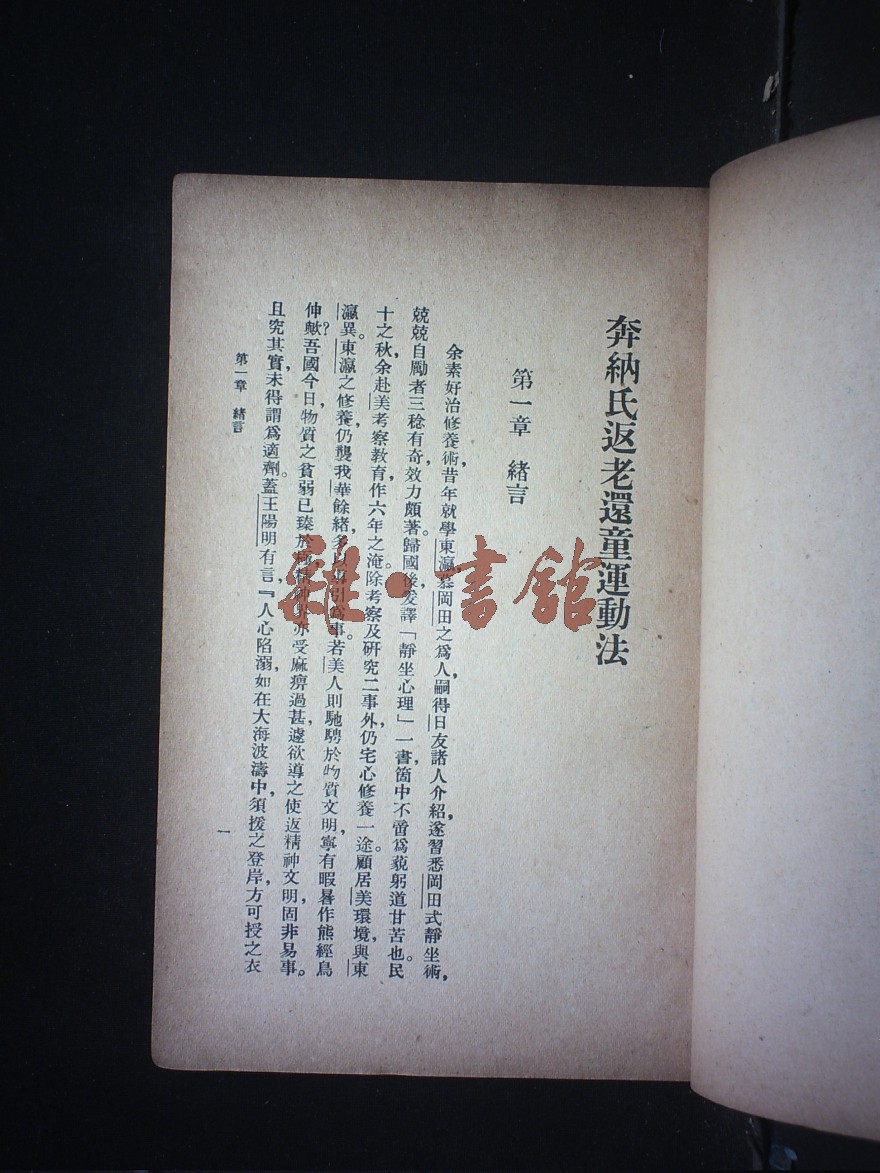 奔納氏返老還童運動法
第一章　緒言
余素好治修養術，昔年就學東瀛，慕岡田之爲人，嗣得日友諸人介紹，遂習悉岡田式靜坐術，
兢兢自勵者三稔，有奇效力頗著。歸國後，爰譯「靜坐心理」一書，箇中不啻爲藐躬道甘苦也。民
十之秋，余赴美考察教育，作六年之淹，除考察及研究二事外，仍宅心修養一途。顧居美環境，與東
瀛異。東瀛之修養，仍襲我華餘緒，多以導引爲事。若美人則馳騁於物質文明，寧有暇晷作熊經鳥
伸歟？吾國今日，物質之貧弱已臻於極，精神界亦受麻痹過甚，遽欲導之使返精神文明，固非易事。
且究其實，未得謂爲適劑。蓋王陽明有言，『人心陷溺，如在大海波濤中，須援之登岸，方可授之衣
第一章　緒言
一
雜·書館